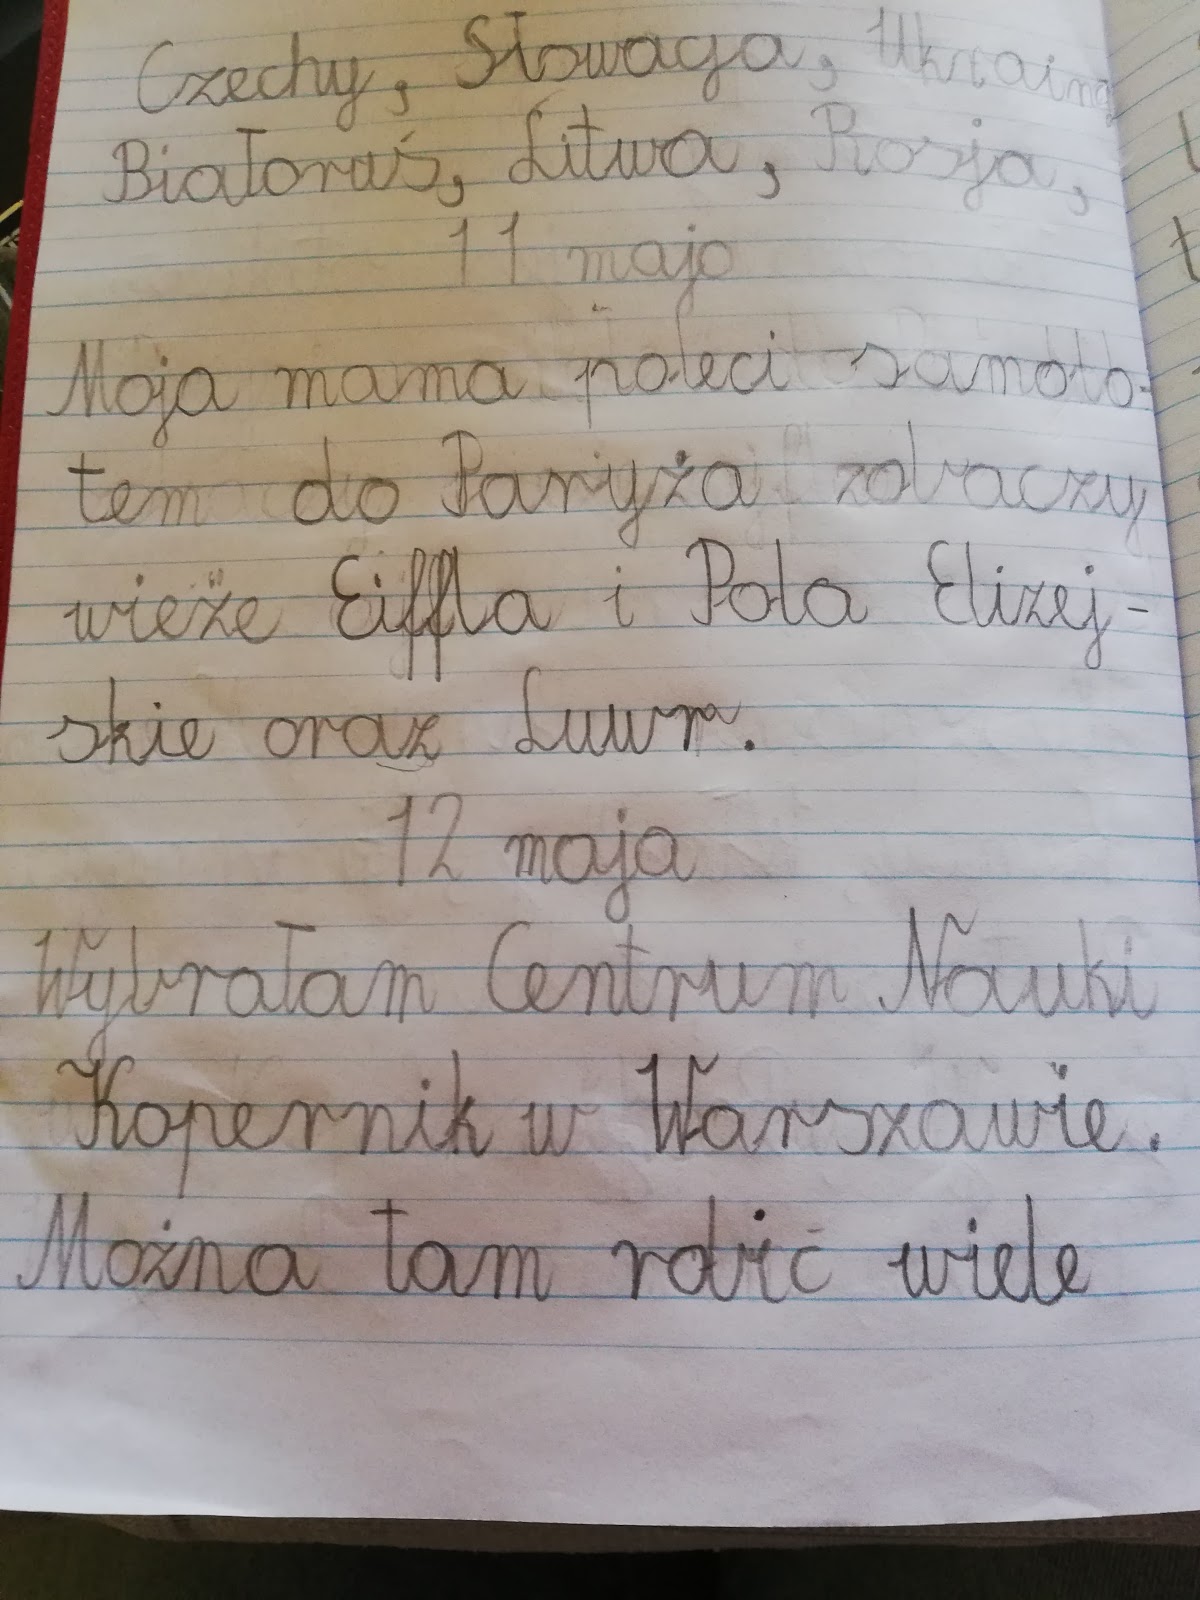 Czechy, Słowaga, Ukraina
Białoruś, Litwa, Rosja,
11 maja
Moja mama poleci samoło-
tem do Paryża zobaczy
wieże Eiffla i Pola Elizej-
skie oraz Luwr.
12 maja
Wybrałam Centrum Nauki
Kopernik w Warszawie.
Można tam robić wiele